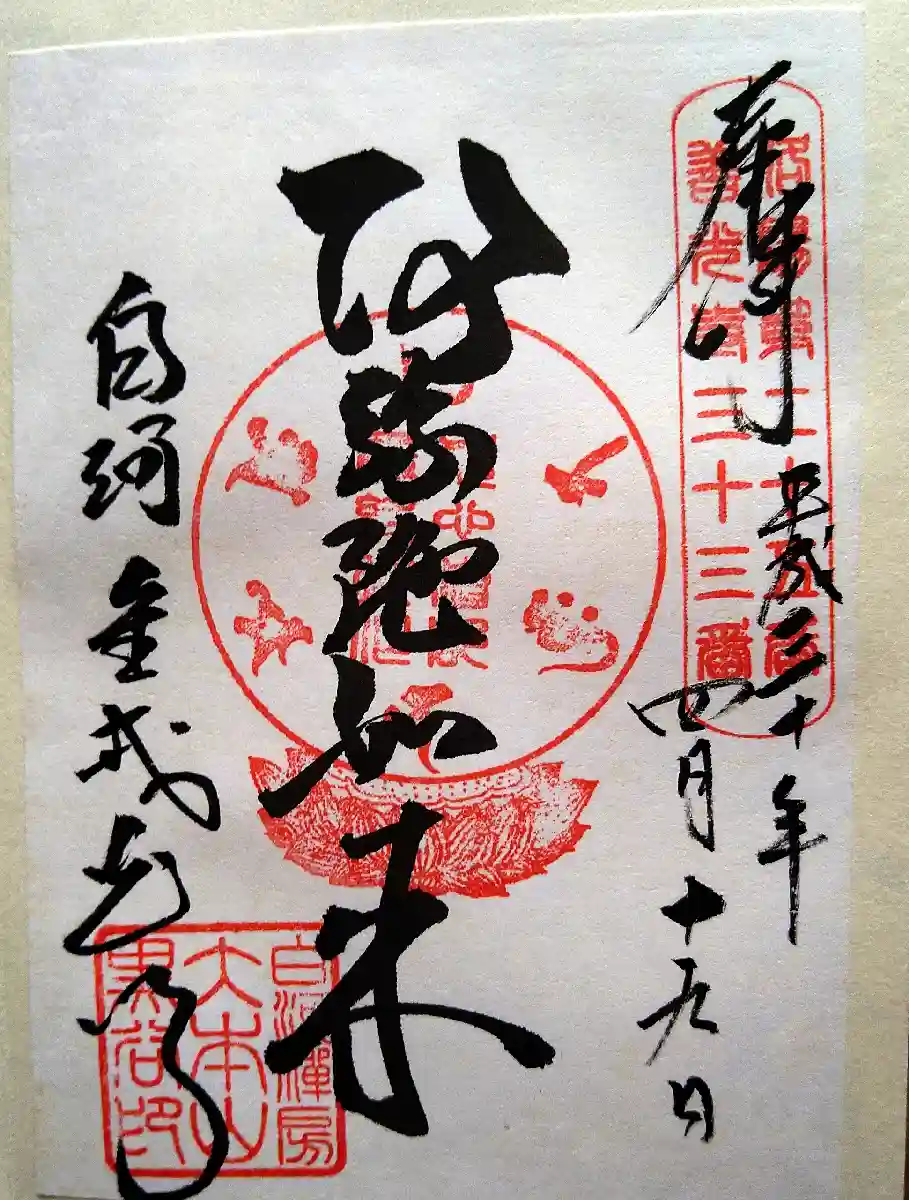 奉拝
平成三十年
四月十九日
三十三番
阿弥陀如来
白河 金戒光明寺
白河禅房
大本山
黒谷印